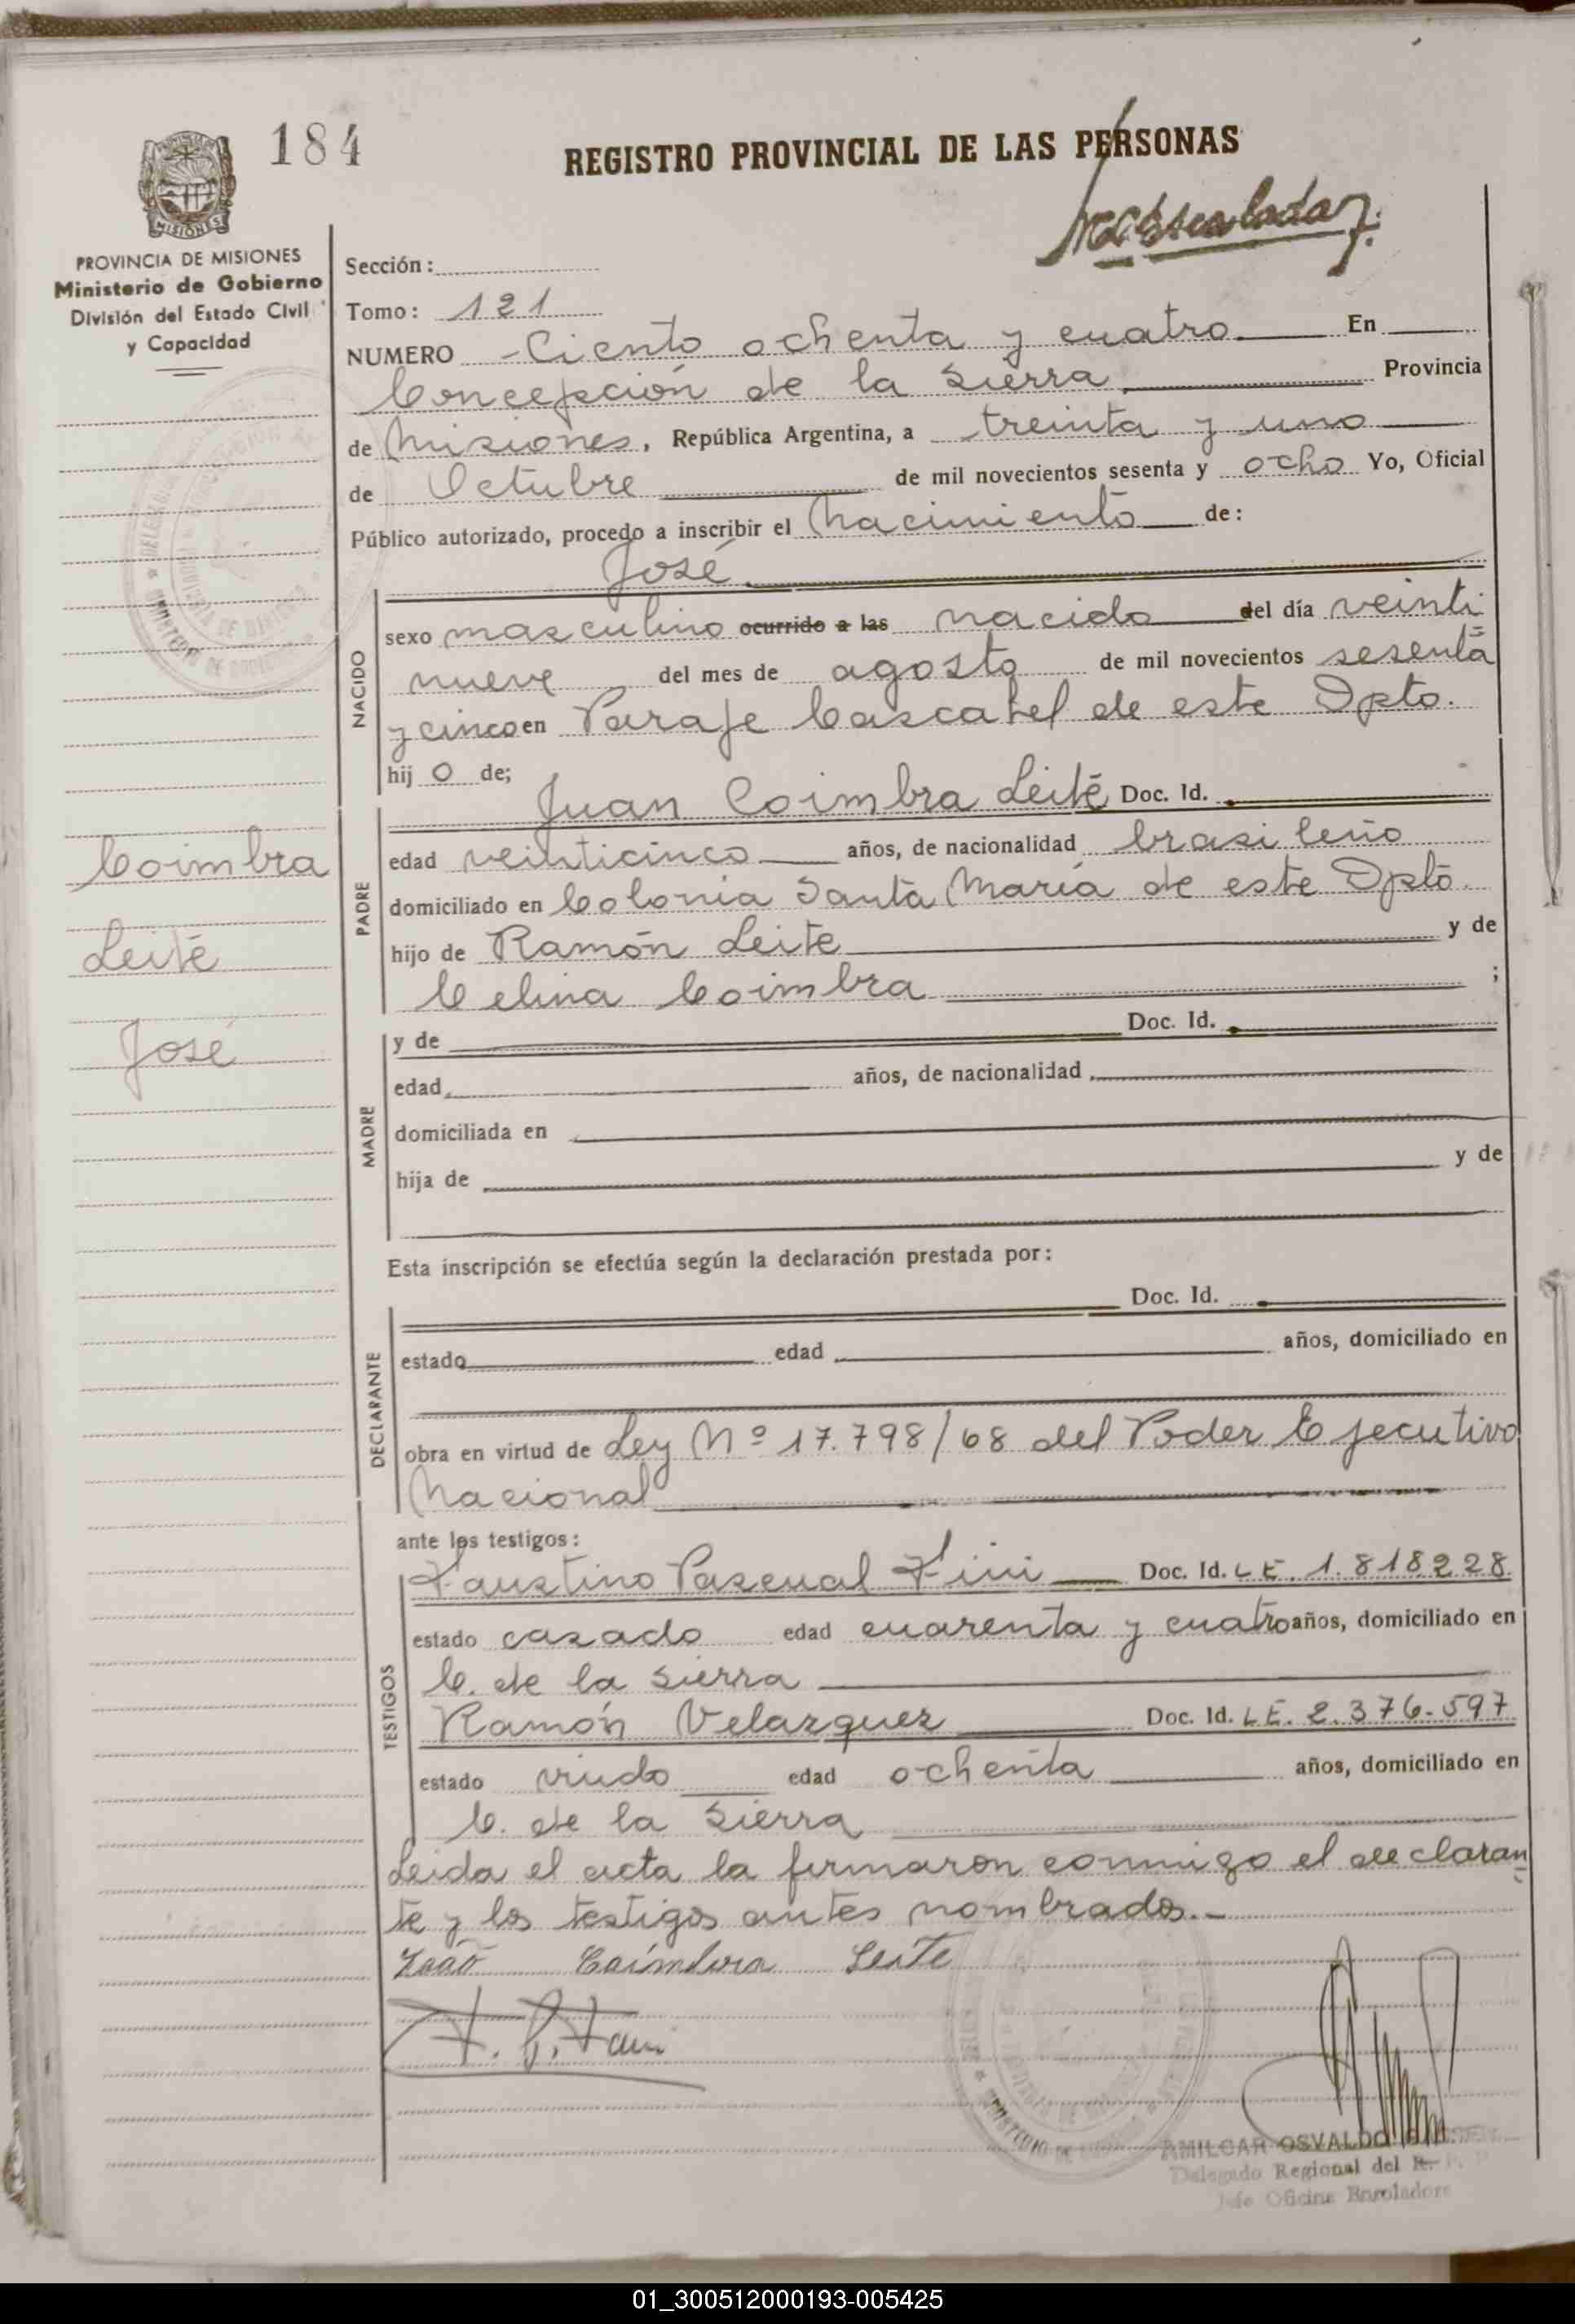 184
REGISTRO PROVINCIAL DE LAS PERSONAS
MISIONES
PROVINCIA DE MISIONES
Ministerio de Gobierno
División del Estado Civil
y Capacidad
Sección:
Tomo: 121
NUMERO - Ciento ochenta y cuatro En
Concepción de la Sierra Provincia
de Misiones, República Argentina, a treinta y uno
de Octubre de mil novecientos sesenta y ocho Yo, Oficial
Público autorizado, procedo a inscribir el Nacimiento de:
José
NACIDO
sexo masculino ocurrido a las nacido del día veinti
nueve del mes de agosto de mil novecientos sesenta
y cinco en Paraje Cascabel de este Dpto.
hij o de;
Juan Coimbra Leite Doc. Id.
PADRE
edad veinticinco años, de nacionalidad brasileño
domiciliado en Colonia Santa María de este Dpto.
hijo de Ramón Leite y de
Celina Coimbra ;
Coimbra
Leite
José
MADRE
y de Doc. Id.
edad años, de nacionalidad
domiciliada en
hija de y de
Esta inscripción se efectúa según la declaración prestada por:
DECLARANTE
Doc. Id.
estado edad años, domiciliado en
obra en virtud de Ley Nº 17.798/68 del Poder Ejecutivo
Nacional
ante los testigos:
TESTIGOS
Faustino Pascual Fini Doc. Id. LE. 1.818228
estado casado edad cuarenta y cuatro años, domiciliado en
C. de la Sierra
Ramón Velazquez Doc. Id. LE. 2.376.597
estado viudo edad ochenta años, domiciliado en
C. de la Sierra
Leida el acta la firmaron conmigo el declaran
te y los testigos antes nombrados.-
João Coimbra Leite
AMILCAR OSVALDO
Delegado Regional del R.
Jefe Oficina Enroladora
01_300512000193-005425